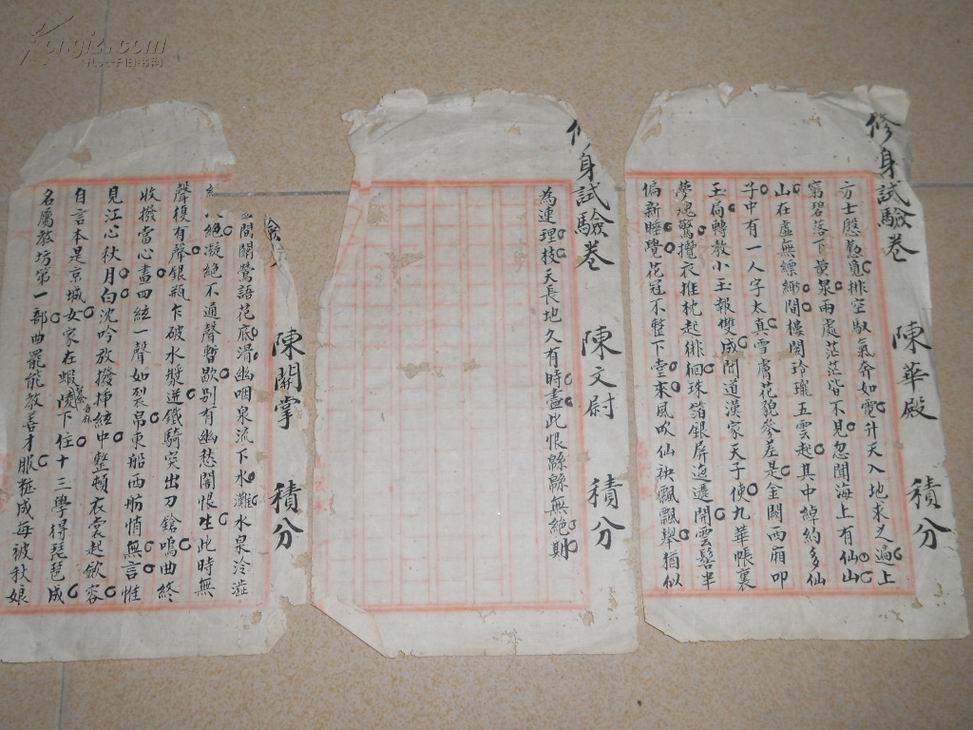 修身試驗卷 陳華殿 積分
方士慇懃覓排空馭氣奔如電升天入地求之遍上
窮碧落下黃泉兩處茫茫皆不見忽聞海上有仙山
山在虛無縹緲間樓閣玲瓏五雲起其中綽約多仙
子中有一人字太真雪膚花貌參差是金闕西廂叩
玉扃轉教小玉報雙成聞道漢家天子使九華帳裏
夢魂驚攬衣推枕起徘徊珠箔銀屏迤邐開雲髻半
偏新睡覺花冠不整下堂來風吹仙袂飄飄舉猶似
修身試驗卷 陳文尉 積分
為連理枝天長地久有時盡此恨緜緜無絕期
陳關掌 積分
間關鶯語花底滑幽咽泉流下水灘水泉冷澁
絕凝絕不通聲暫歇別有幽愁闇恨生此時無
聲復有聲銀瓶乍破水漿迸鐵騎突出刀鎗鳴曲終
收撥當心畫四絃一聲如裂帛東船西舫悄無言惟
見江心秋月白沈吟放撥揷絃中整頓衣裳起歛容
自言本是京城女家在蝦陵下住十三學得琵琶成
名屬教坊第一部曲罷能教善才服粧成每被秋娘